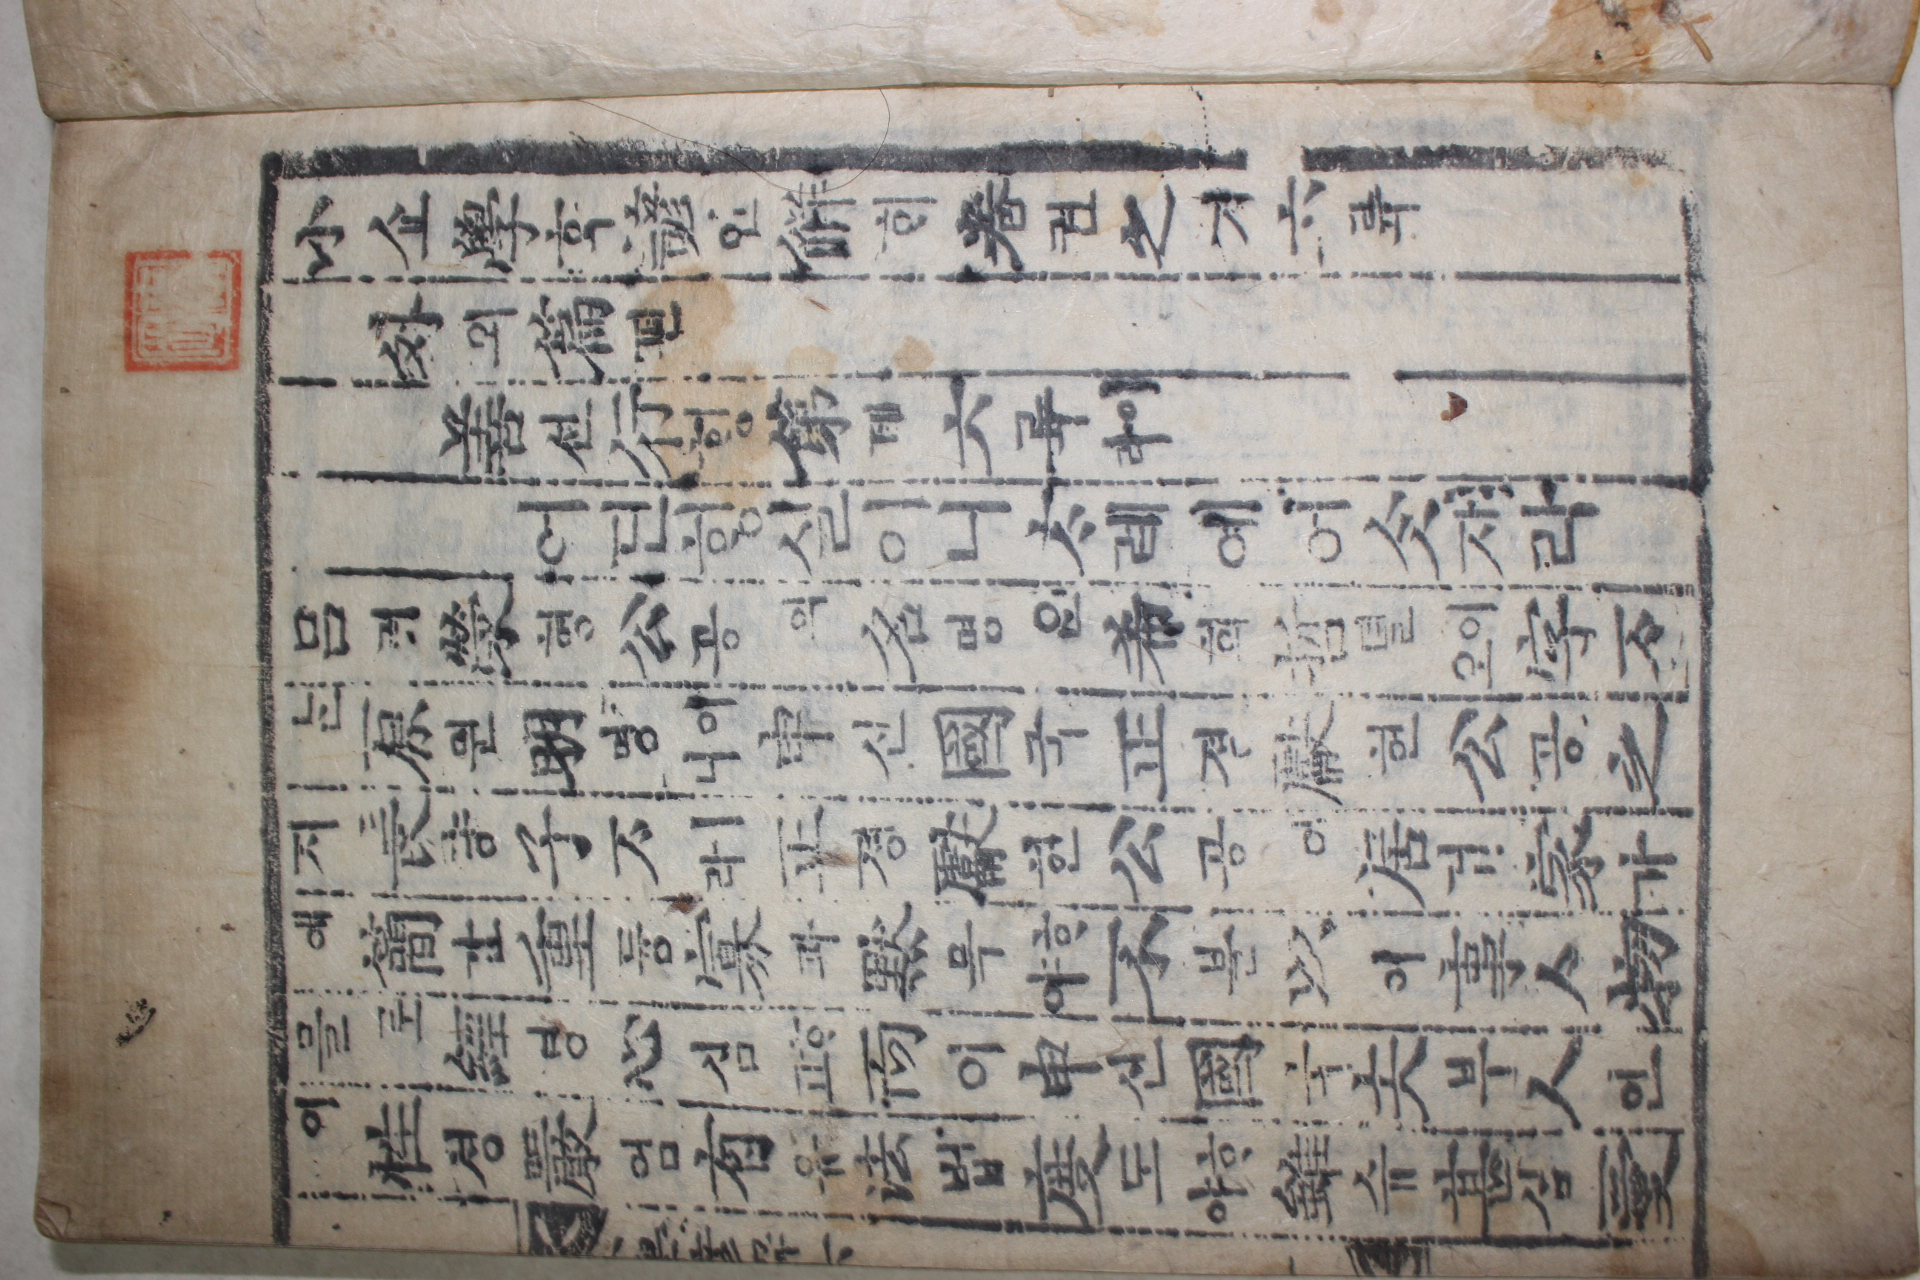 小쇼學학諺언解ᄒᆡ卷권之지六륙
外외篇편
善션行ᄒᆡᆼ第뎨六륙이라
어딘ᄒᆡᆼ실이니ᄎᆞ례예여ᄉᆞᆺ재라
呂려榮영公공의名명은希희哲텰이오字ᄌᆞ
ᄂᆞᆫ原원明명이니申신國국正졍獻헌公공之
지長쟝子ᄌᆞ라正졍獻헌公공이居거家가
애簡간重듕寡과默묵ᄒᆞ야不블以이事ᄉᆞ物
믈로經경心심호ᄃᆡ而이申신國국夫부人인
이性셩嚴엄有유法법度도ᄒᆞ야雖슈甚심愛